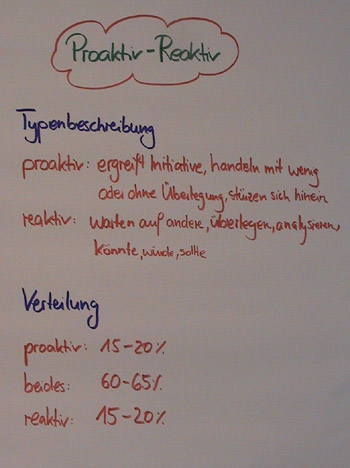 Proaktiv-Reaktiv
Typenbeschreibung
proaktiv: ergreift Initiative, handeln mit wenig
oder ohne Überlegung, stürzen sich hinein
reaktiv: warten auf andere, überlegen, analysieren,
könnte, würde, sollte
Verteilung
proaktiv: 15-20%
beides: 60-65%
reaktiv: 15-20%